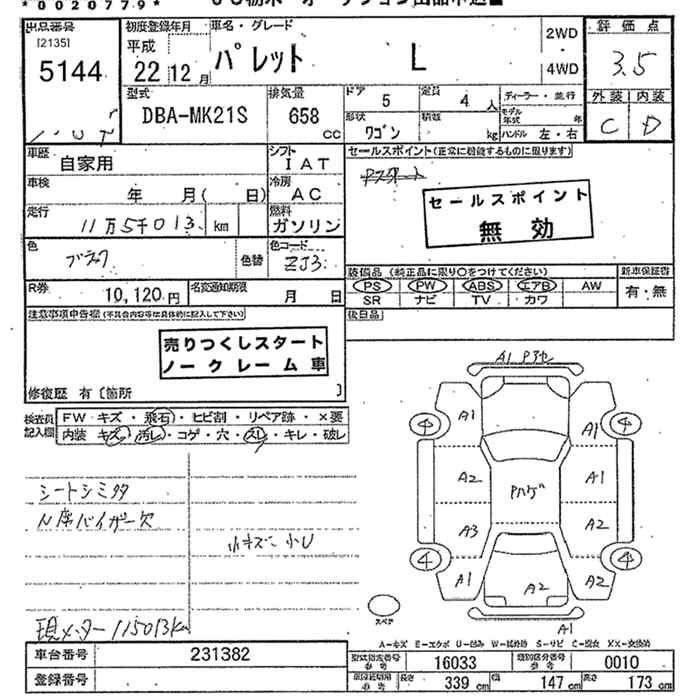 *0020779* JU栃木 オークション出品申込■
出品番号 初度登録年月 車名・グレード 2WD 評価点
[2135] 平成
5144 22 12月 パレット L ・ 4WD 3.5
型式 排気量 ドア 5 定員 4人 ディーラー・並行 外装 内装
DBA-MK21S 658 cc 形状 ワゴン 積載 kg モデル年式 年 ハンドル 左・右 C D
車歴 自家用 シフト IAT セールスポイント(正常に機能するものに限ります)
車検 年 月( 日) 冷房 AC セールスポイント
走行 11万5千013 km 燃料 ガソリン 無効
色 ブラック 色替 色コード ZJ3
装備品(純正品に限り〇をつけてください) 新車保証書
R券 10,120円 名変通知期限 月 日 PS PW ABS エアB AW 有・無
SR ナビ TV カワ
注意事項申告欄(不具合内容等は具体的に記入して下さい) 後日品
売りつくしスタート
ノークレーム車
修復歴 有〔箇所 〕
検査員 FW キズ・飛石・ヒビ割・リペア跡・×要
記入欄 内装 キズ・汚レ・コゲ・穴・スレ・キレ・破レ
シートシミタタ
N席バイザー欠
小キズ 小U
現メーター 115013km
A1
A1 A1
A2 Pハゲ A1
A3 A2
A1 A2 A2
A1
4 4
4 4
スペア
A-キズ E-エクボ U-凹み W-補修跡 S-サビ C-腐食 XX-交換済
車台番号 231382 型式指定番号 参考 16033 類別区分番号 参考 0010
登録番号 参考 長さ 339cm 幅 147cm 高さ 173cm